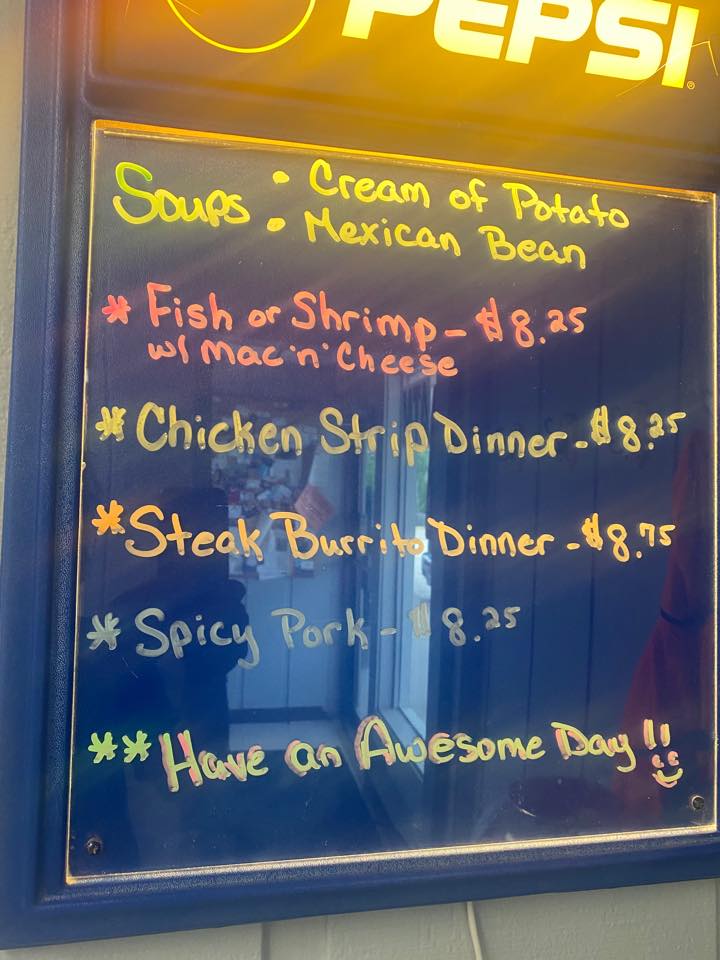 PEPSI®
Soups • Cream of Potato
• Mexican Bean
* Fish or Shrimp - $8.25
w/ Mac 'n' Cheese
* Chicken Strip Dinner - $8.25
* Steak Burrito Dinner - $8.75
* Spicy Pork - $8.25
** Have an Awesome Day!!